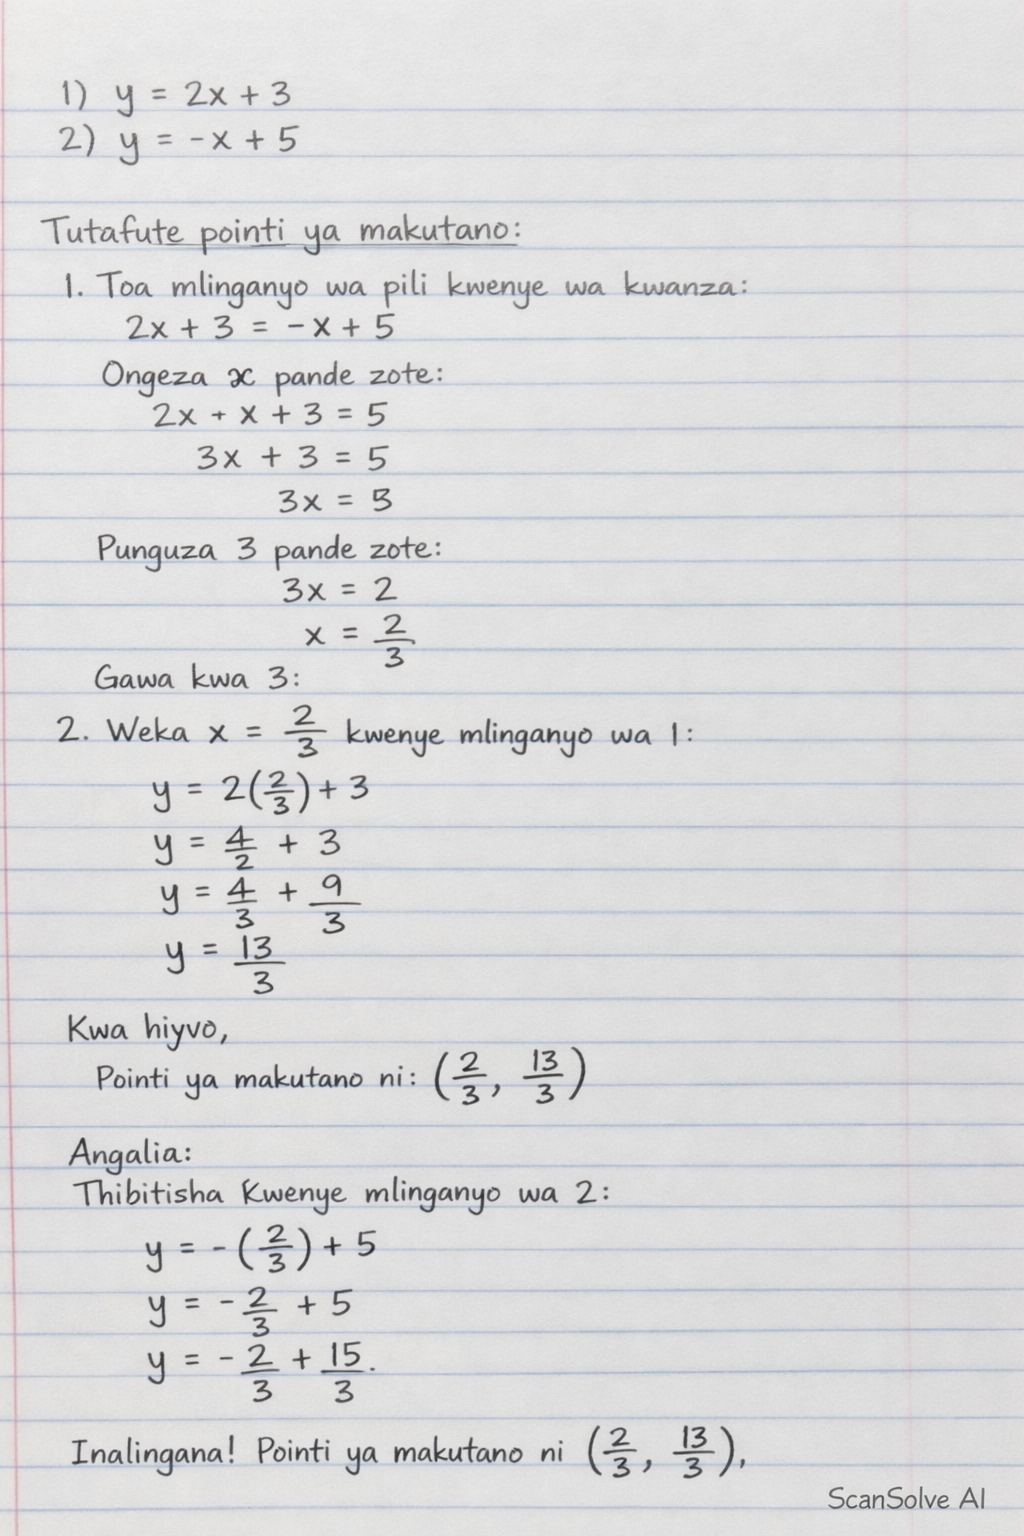 1) y = 2x + 3
2) y = -x + 5
Tutafute pointi ya makutano:
1. Toa mlinganyo wa pili kwenye wa kwanza:
2x + 3 = -x + 5
Ongeza x pande zote:
2x + x + 3 = 5
3x + 3 = 5
3x = 5
Punguza 3 pande zote:
3x = 2
x = 2/3
Gawa kwa 3:
2. Weka x = 2/3 kwenye mlinganyo wa 1:
y = 2(2/3) + 3
y = 4/2 + 3
y = 4/3 + 9/3
y = 13/3
Kwa hiyvo,
Pointi ya makutano ni: (2/3, 13/3)
Angalia:
Thibitisha Kwenye mlinganyo wa 2:
y = -(2/3) + 5
y = -2/3 + 5
y = -2/3 + 15/3.
Inalingana! Pointi ya makutano ni (2/3, 13/3),
ScanSolve AI